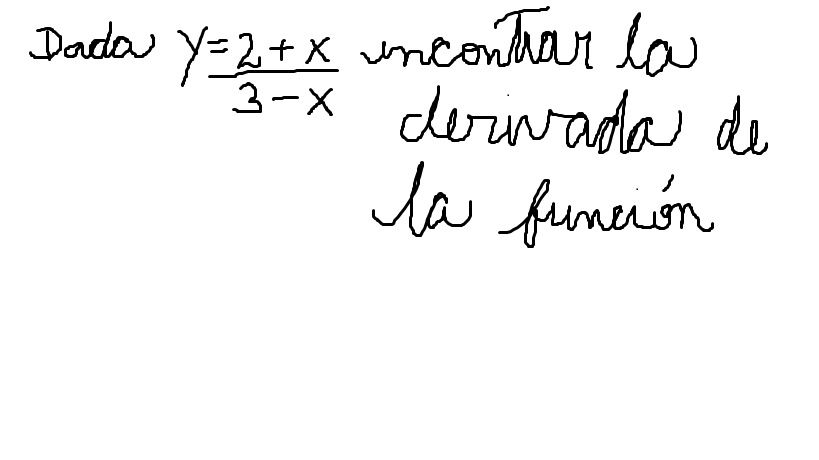 Dada y = 2 + x / 3 - x encontrar la
derivada de
la función